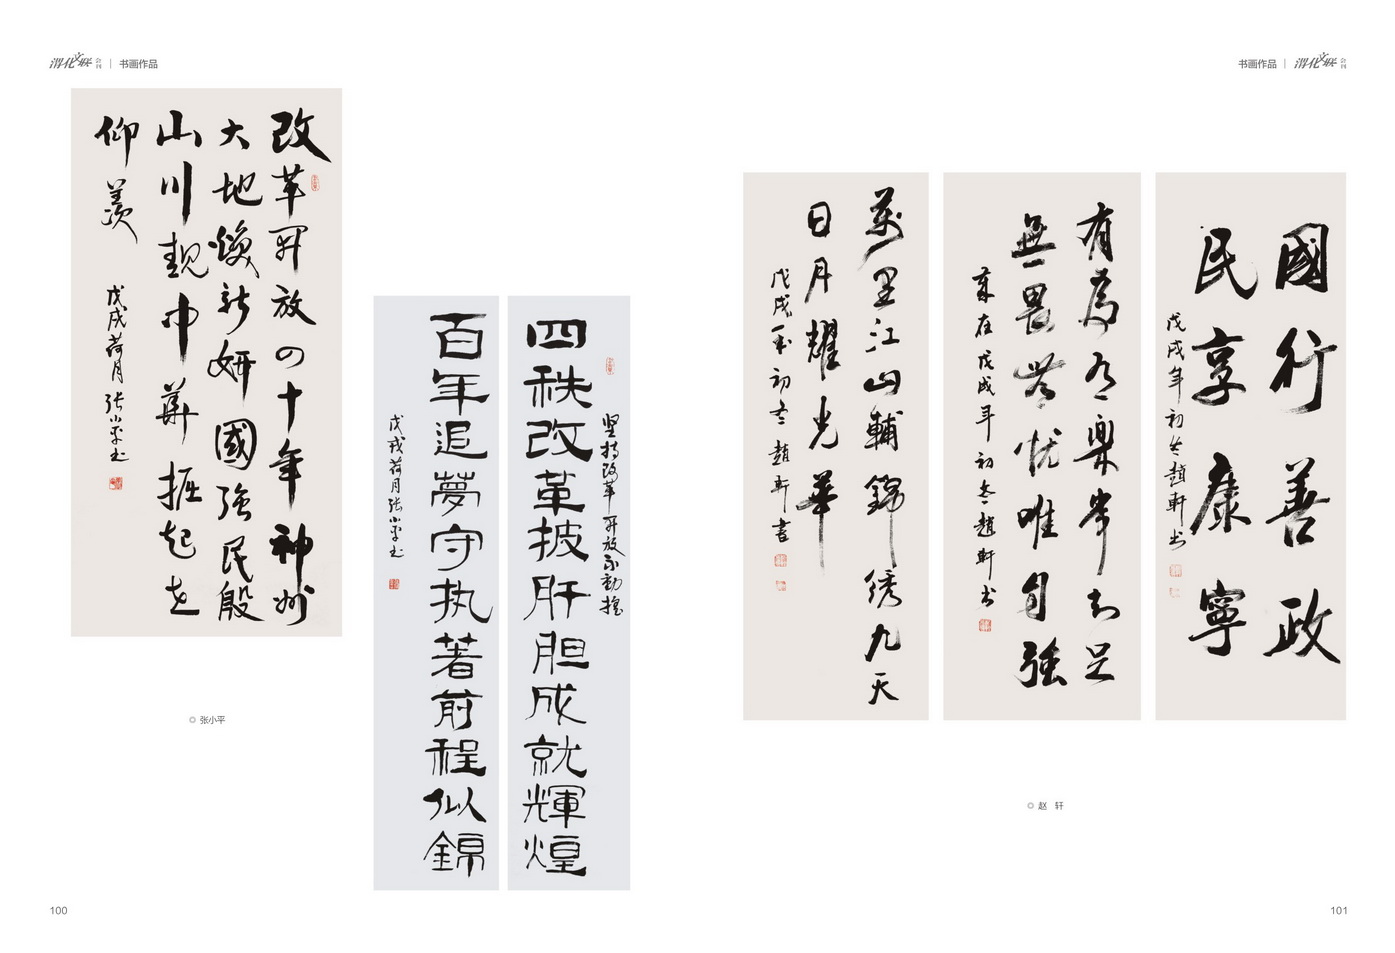 渭化文联 会刊 | 书画作品
改革开放四十年神州
大地焕新妍國强民殷
山川靓中華振起共
仰羡
戊戌荷月张小平书
张小平
坚持改革开放不動摇
四秩改革披肝胆成就輝煌
百年追夢守执著前程似錦
戊戌荷月张小平书
100
书画作品 | 渭化文联 会刊
國行善政
民享康寧
戊戌年初冬趙軒书
有為有樂常知足
無畏無忧唯自强
岁在戊戌年初冬趙軒书
萬里江山輔錦绣九天
日月耀光華
戊戌年初冬趙軒書
赵 轩
101